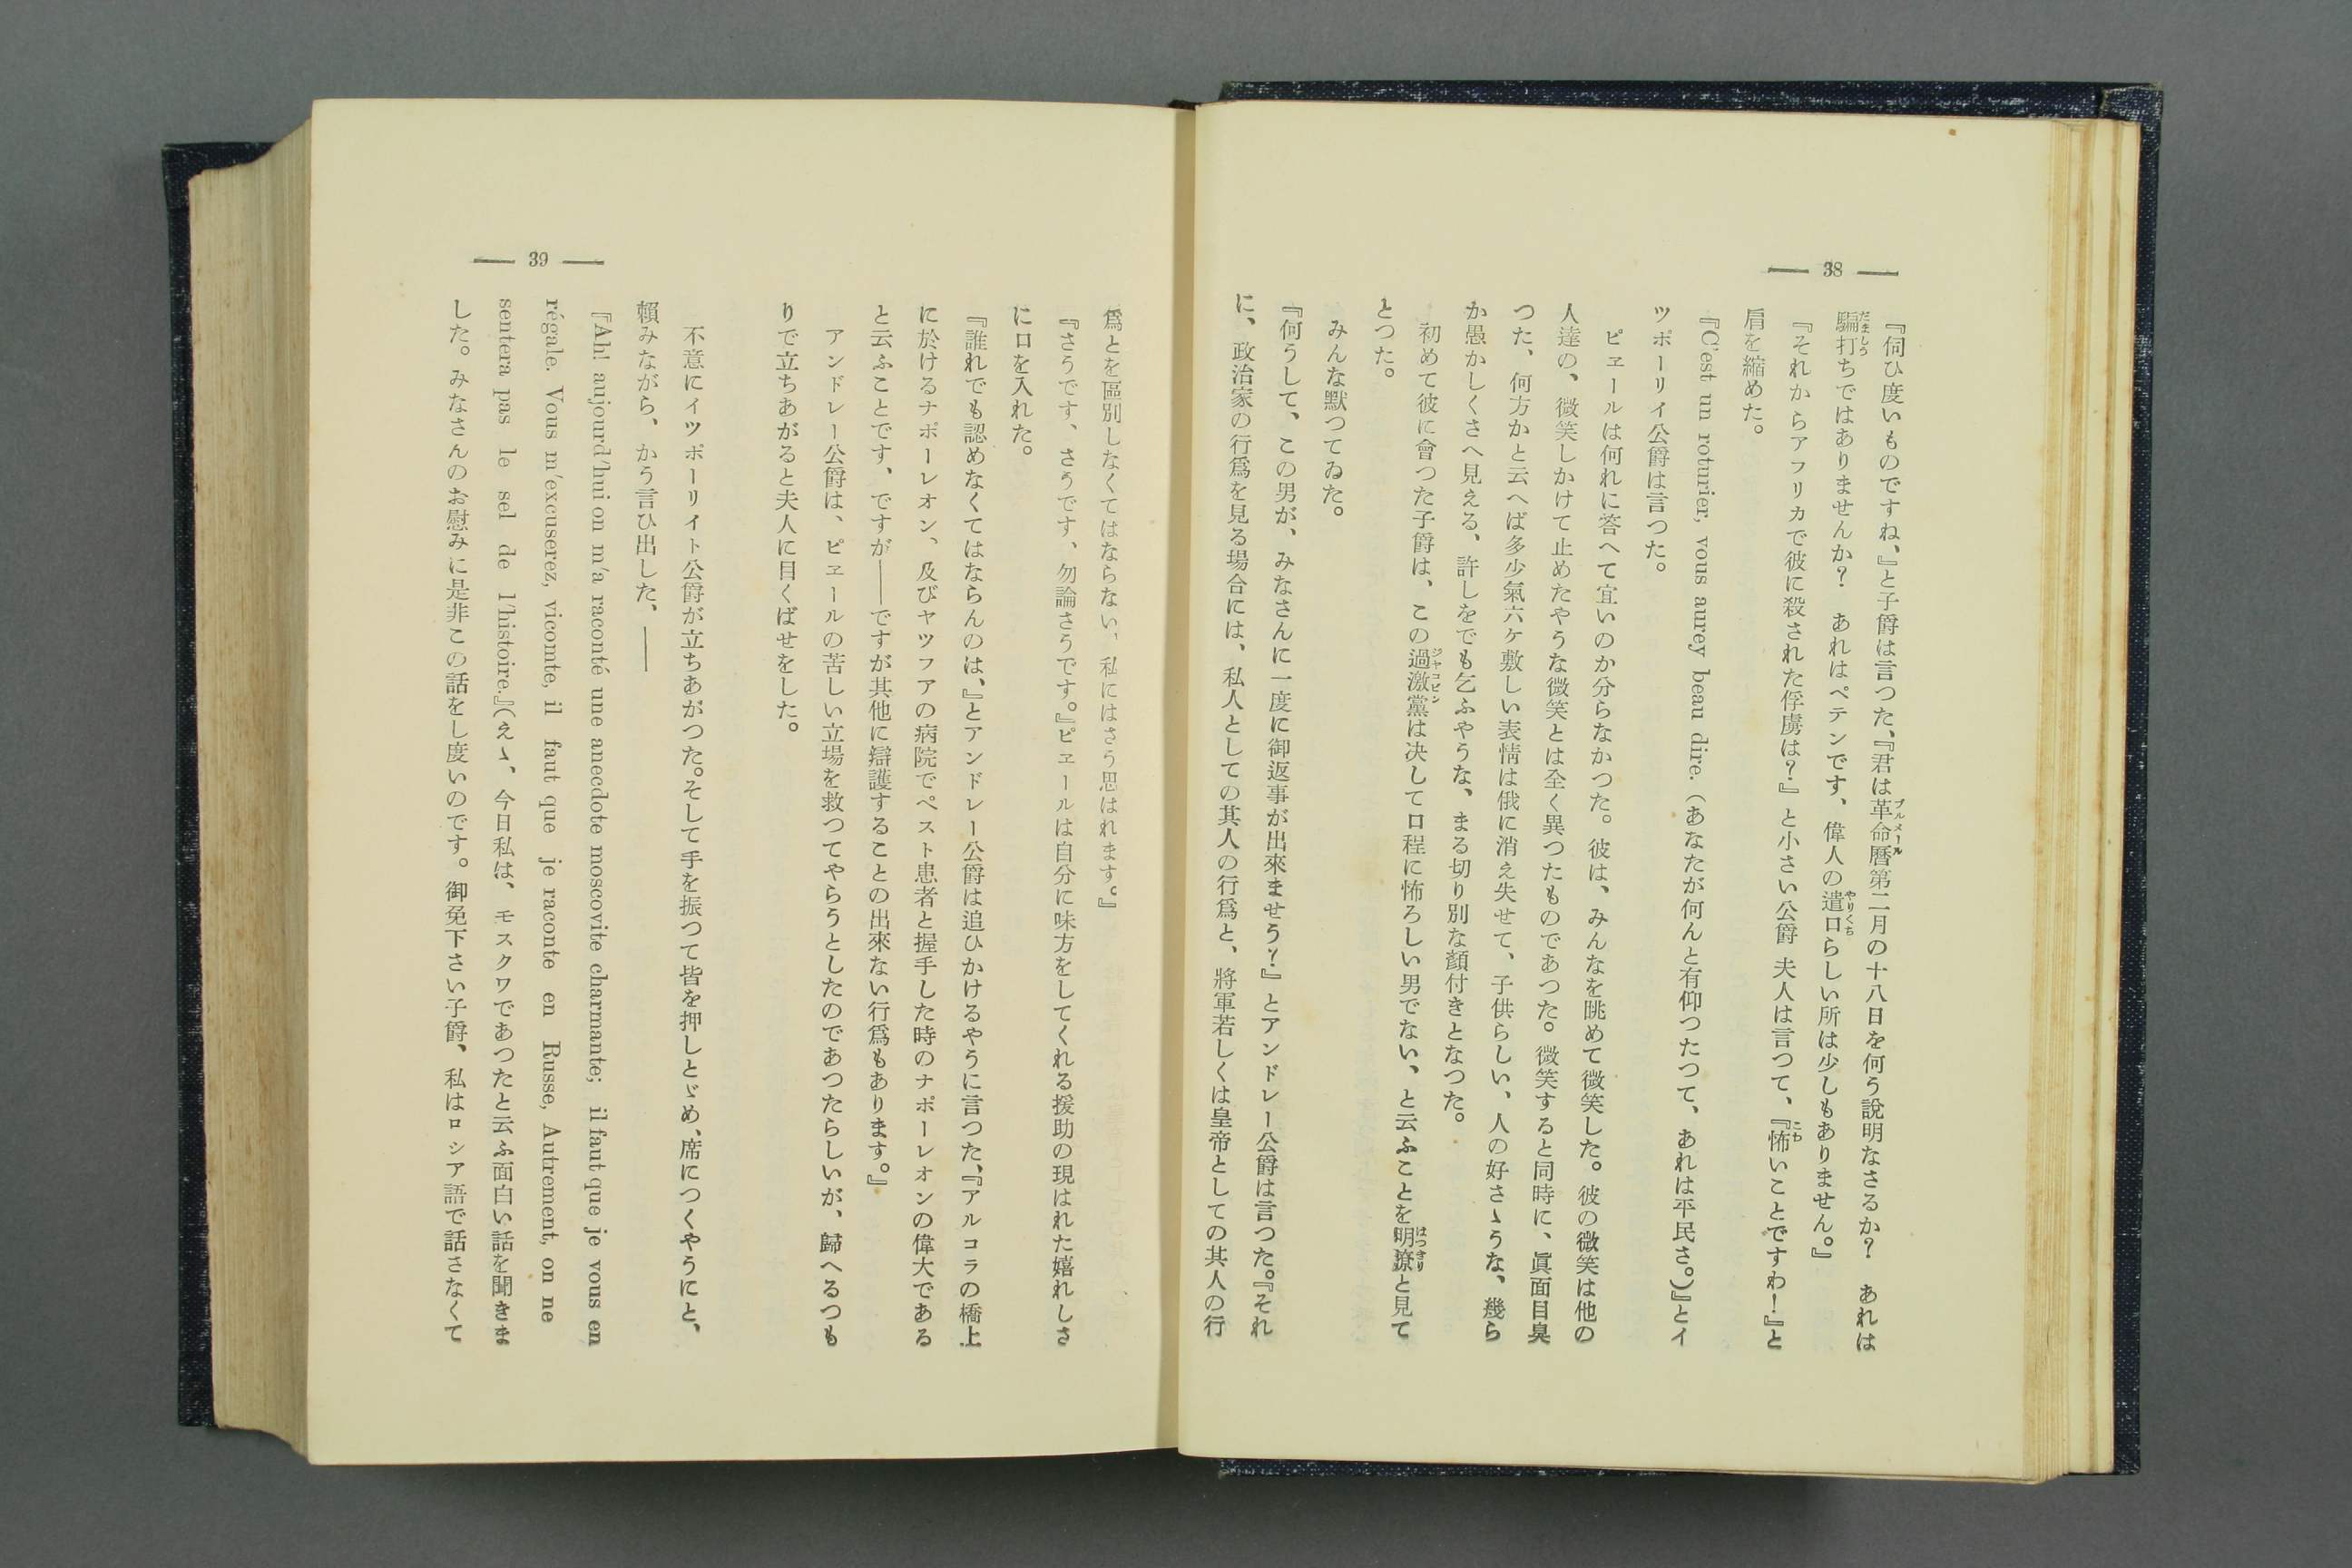 — 38 —
『伺ひ度いものですね、』と子爵は言つた、『君は革命曆第二月の十八日を何う說明なさるか？　あれは
騙打ちではありませんか？　あれはペテンです、偉人の遣口らしい所は少しもありません。』
『それからアフリカで彼に殺された俘虜は？』と小さい公爵夫人は言つて、『怖いことですわ！』と
肩を縮めた。
『C'est un roturier, vous aurey beau dire.（あなたが何んと有仰つたつて、あれは平民さ。）』とイ
ツポーリイ公爵は言つた。
ピエールは何れに答へて宜いのか分らなかつた。彼は、みんなを眺めて微笑した。彼の微笑は他の
人達の、微笑しかけて止めたやうな微笑とは全く異つたものであつた。微笑すると同時に、眞面目臭
つた、何方かと云へば多少氣六ケ敷しい表情は俄に消え失せて、子供らしい、人の好さゝうな、幾ら
か愚かしくさへ見える、許しをでも乞ふやうな、まる切り別な顏付きとなつた。
初めて彼に會つた子爵は、この過激黨は決して口程に怖ろしい男でない、と云ふことを明瞭と見て
とつた。
みんな默つてゐた。
『何うして、この男が、みなさんに一度に御返事が出來ませう？』とアンドレー公爵は言つた。『それ
に、政治家の行爲を見る場合には、私人としての其人の行爲と、將軍若しくは皇帝としての其人の行
— 39 —
爲とを區別しなくてはならない、私にはさう思はれます。』
『さうです、さうです、勿論さうです。』ピエールは自分に味方をしてくれる援助の現はれた嬉れしさ
に口を入れた。
『誰れでも認めなくてはならんのは、』とアンドレー公爵は追ひかけるやうに言つた、『アルコラの橋上
に於けるナポーレオン、及びヤツフアの病院でペスト患者と握手した時のナポーレオンの偉大である
と云ふことです、ですが——ですが其他に辯護することの出來ない行爲もあります。』
アンドレー公爵は、ピエールの苦しい立場を救つてやらうとしたのであつたらしいが、歸へるつも
りで立ちあがると夫人に目くばせをした。
不意にイツポーリイト公爵が立ちあがつた。そして手を振つて皆を押しとゞめ、席につくやうにと、
賴みながら、かう言ひ出した、——
『Ah! aujourd'hui on m'a raconté une anecdote moscovite charmante; il faut que je vous en
régale. Vous m'excuserez, vicomte, il faut que je raconte en Russe, Autrement, on ne
sentera pas le sel de l'histoire.』（えゝ、今日私は、モスクワであつたと云ふ面白い話を聞きま
した。みなさんのお慰みに是非この話をし度いのです。御免下さい子爵、私はロシア語で話さなくて